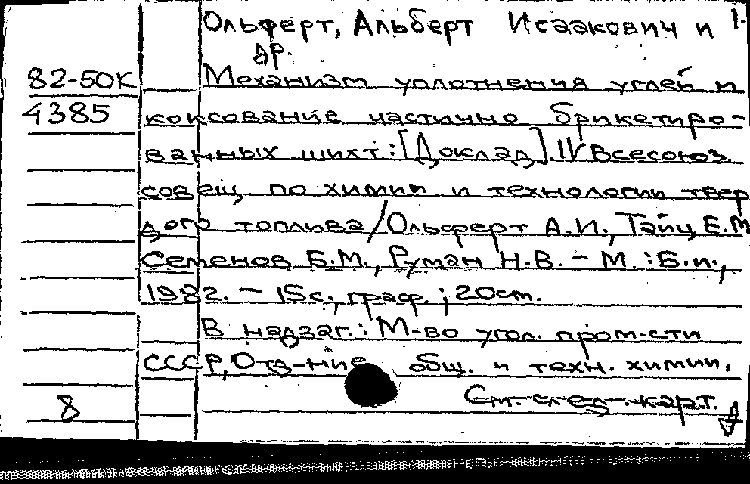 Ольферт, Альберт Исаакович и 1.
др.
82-50К Механизм уплотнения углей и
4385 коксование частично брикетиро-
ванных шихт: [Доклад]. IV Всесоюз.
совещ. по химии и технологии твер
дого топлива/Ольферт А.И., Тайц Е.М
Семенов Б.М., Руман Н.В. - М.: Б.и.,
1982. - 15с., граф.; 20см.
В надзаг.: М-во угол. пром-сти
СССР, Отд-ние общ. и техн. химии.
8 См. след. карт.